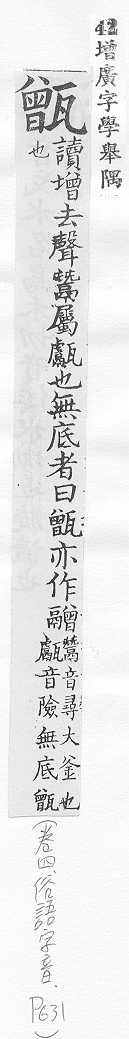 42 增廣字學舉隅
甑 讀增去聲鬵屬甗也無底者曰甑亦作䰝
鬵音尋大釜也
甗音險無底甑
也
(卷四俗語字音、P631)